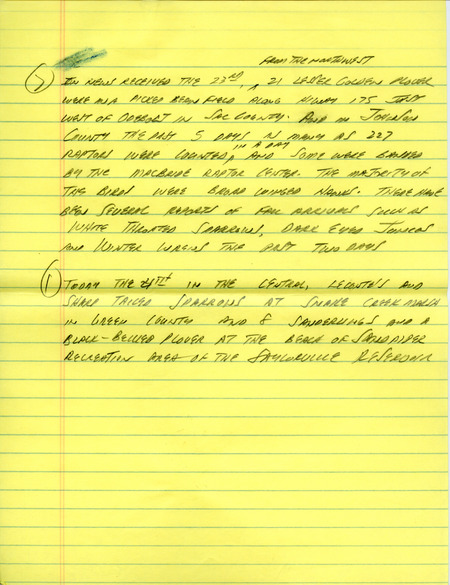 FROM THE NORTHWEST
② IN NEWS RECEIVED THE 23RD, ^ 21 LESSER GOLDEN PLOVER
WERE IN A PICKED BEAN FIELD ALONG HIWAY 175 JUST
WEST OF ODEBOLT IN SAC COUNTY. AND IN JOHNSON
COUNTY THE PAST 5 DAYS AS MANY AS 227
IN A DAY
RAPTORS WERE COUNTED, ^ AND SOME WERE BANDED
BY THE MACBRIDE RAPTOR CENTER. THE MAJORITY OF
THE BIRDS WERE BROAD WINGED HAWKS. THERE HAVE
BEEN SEVERAL REPORTS OF FALL ARRIVALS SUCH AS
WHITE THROATED SPARROWS, DARK EYED JUNCOS
AND WINTER WRENS THE PAST TWO DAYS
① TODAY THE 24TH IN THE CENTRAL, LECONTE'S AND
SHARP TAILED SPARROWS AT SNAKE CREEK MARSH
IN GREEN COUNTY AND 8 SANDERLINGS AND A
BLACK-BELLIED PLOVER AT THE BEACH OF SANDPIPER
RECREATION AREA OF THE SAYLORVILLE RESERVOIR